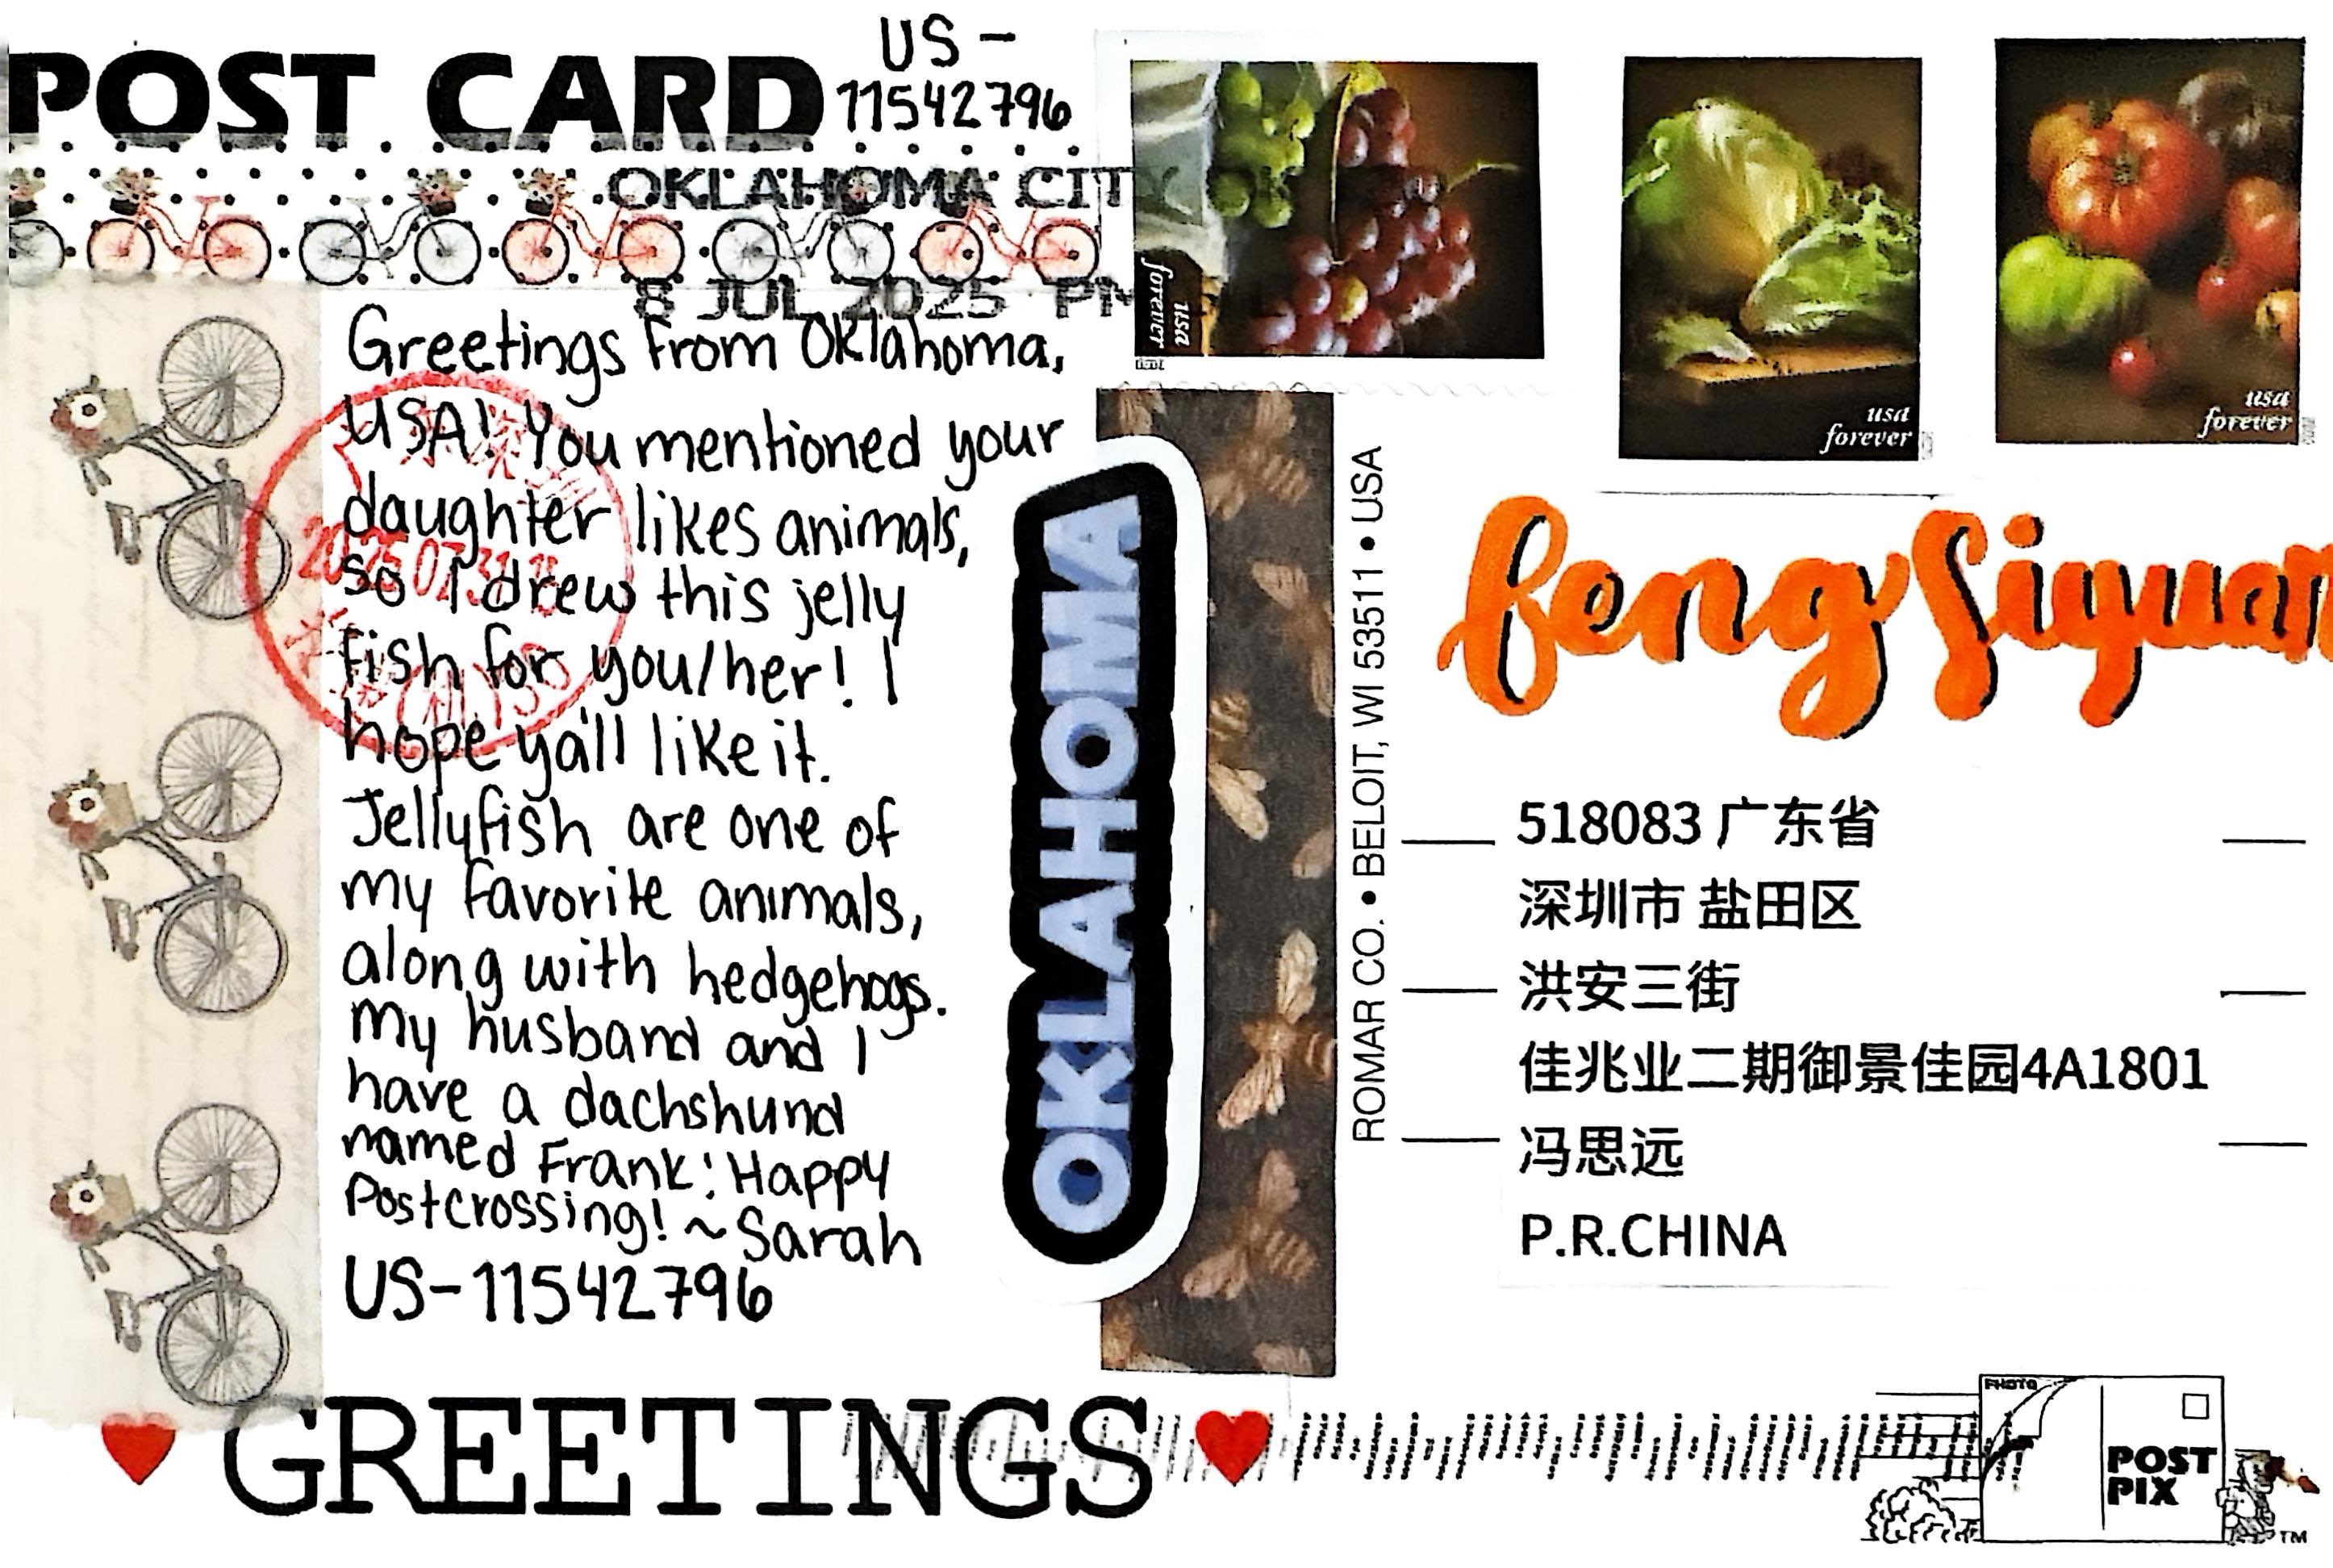 POST CARD
US-
11542796
OKLAHOMA CIT
8 JUL 2025 PM
Greetings from Oklahoma,
USA! You mentioned your
daughter likes animals,
so I drew this jelly
fish for you/her! I
hope ya'll like it.
Jellyfish are one of
my favorite animals,
along with hedgehogs.
My husband and I
have a dachshund
named Frank! Happy
Postcrossing! ~Sarah
US-11542796
GREETINGS
OKLAHOMA
ROMAR CO. • BELOIT, WI 53511 • USA
usa
forever
usa
forever
usa
forever
feng Siyuan
518083 广东省
深圳市 盐田区
洪安三街
佳兆业二期御景佳园4A1801
冯思远
P.R.CHINA
PHOTO
POST
PIX
TM